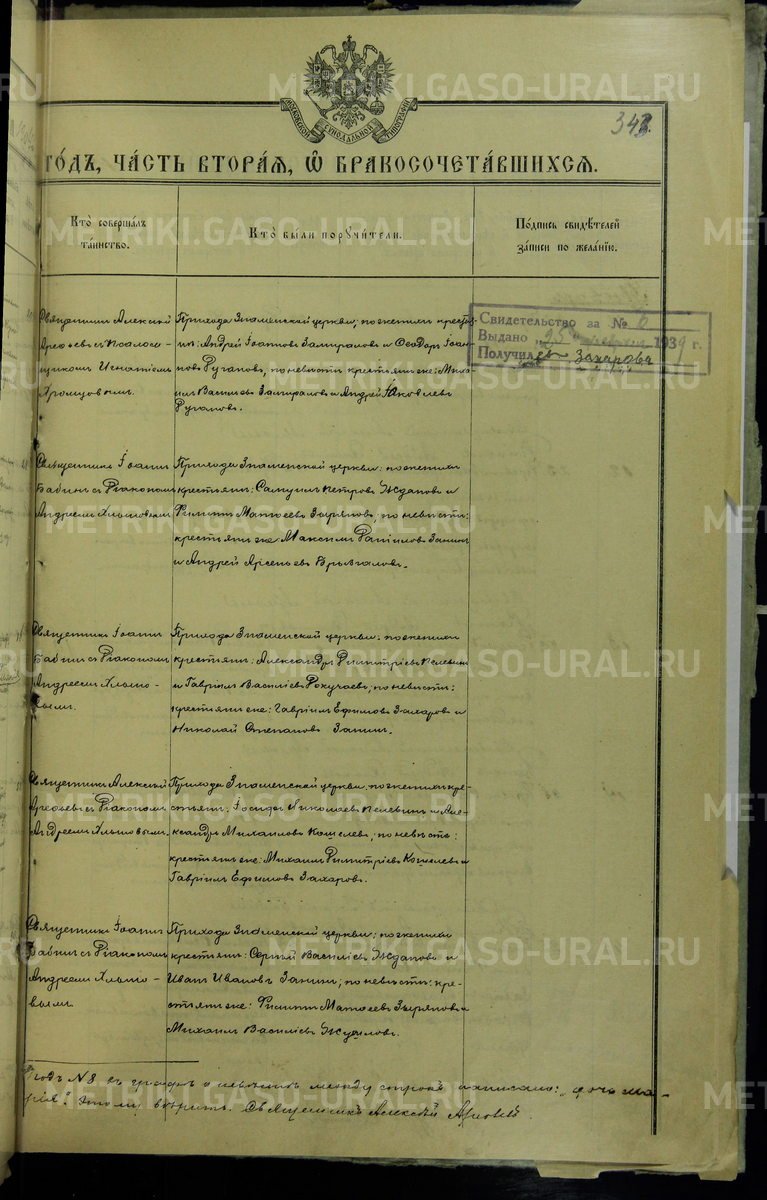 343.
МОСКОВСКОЙ СѴНОДАЛЬНОЙ ТИПОГРАФІИ
ГО́ДЪ, ЧА́СТЬ ВТОРА́Я, Ѽ БРАКОСОЧЕТА́ВШИХСЯ.
Кто̀ соверша́лъ
та́инство.
Кто̀ бы́ли порꙋчи́тели.
По́дпись свидѣ́телей
за́писи по жела́нїю.
Священникъ Алексій
Арефьевъ съ псалом-
щикомъ Игнатіемъ
Хромцовымъ.
Прихода Знаменской церкви; по женихѣ крестья-
не: Андрей Іоанновъ Замираловъ и Ѳеодоръ Іоан-
новъ Ругановъ, по невѣстѣ крестьяне же: Миха-
илъ Васильевъ Замираловъ и Андрей Іаковлевъ
Ругановъ.
Свидетельство за № 6
Выдано 25 1939 г.
Получил Захарова
Священникъ Іоаннъ
Бабинъ съ Діакономъ
Андреемъ Хлыновымъ
Прихода Знаменской церкви; по женихѣ
крестьяне: Самуилъ Петровъ Ждановъ и
Филиппъ Матѳеевъ Зыряновъ; по невѣстѣ:
крестьяне же Максимъ Даниловъ Занинъ
и Андрей Арсеньевъ Брызгаловъ.
Священникъ Іоаннъ
Бабинъ съ Діакономъ
Андреемъ Хлыно-
вымъ.
Прихода Знаменской церкви; по женихѣ
крестьяне: Александръ Димитріевъ Пелевинъ
и Гавріилъ Василіевъ; по невѣстѣ:
крестьяне же: Гавріилъ Ефимовъ Захаровъ и
Николай Степановъ Занинъ.
Священникъ Алексій
Арефьевъ съ Діакономъ
Андреемъ Хлыновымъ.
Прихода Знаменской церкви; по женихѣ кре-
стьяне: Іосифъ Николаевъ Пелевинъ и Але-
ксандръ Михаиловъ Кошелевъ; по невѣстѣ:
крестьяне же: Михаилъ Димитріевъ Кошелевъ и
Гавріилъ Ефимовъ Захаровъ.
Священникъ Іоаннъ
Бабинъ съ Діакономъ
Андреемъ Хлыно-
вымъ.
Прихода Знаменской церкви; по женихѣ
крестьяне: Сергій Василіевъ Ждановъ и
Иванъ Ивановъ Занинъ; по невѣстѣ: кре-
стьяне же: Филиппъ Матѳеевъ Зыряновъ и
Михаилъ Василіевъ.
Подъ № 8 въ графѣ о невѣстѣ между строкъ написано: „дочь Ма-
рія“. Этому вѣрить. Священникъ Алексѣй Арефьевъ.
METRIKI.GASO-URAL.RU